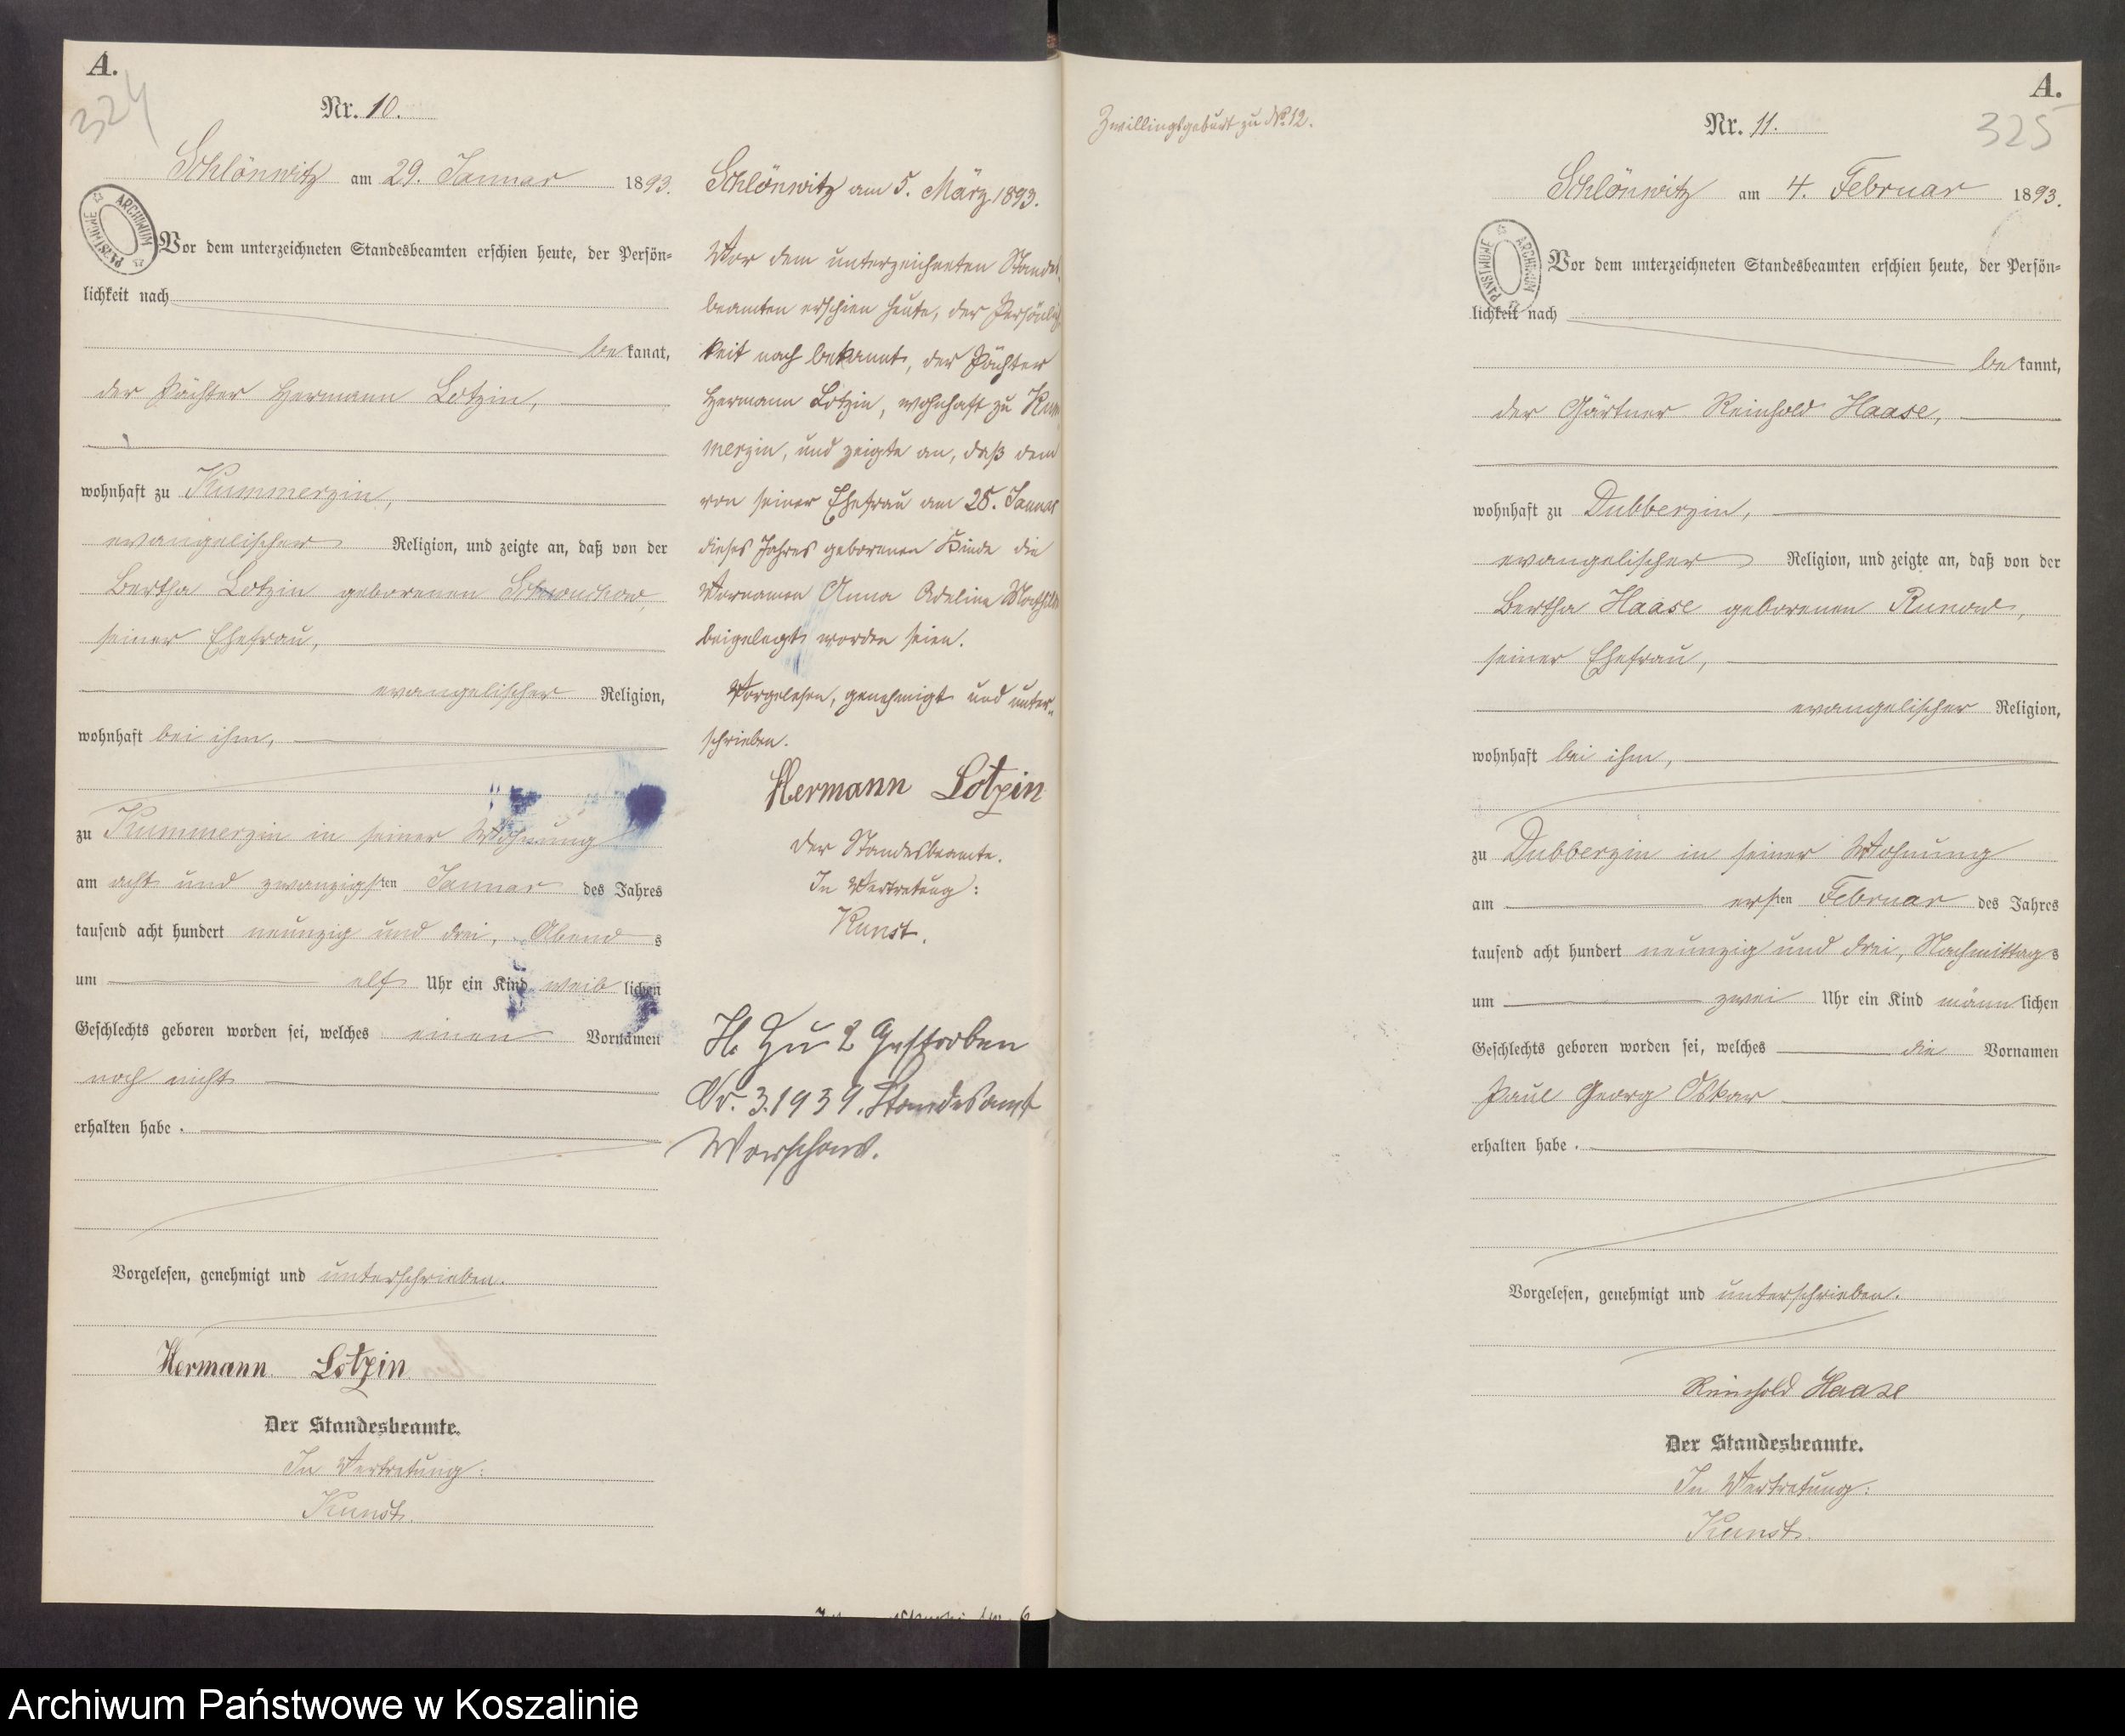 A.
324
Nr. 10.
Schlönwitz am 29. Januar 1893.
ARCHIWUM PAŃSTWOWE
Vor dem unterzeichneten Standesbeamten erschien heute, der Persön-
lichkeit nach
be kannt,
der Pächter Hermann Lotzin,
wohnhaft zu Kummerzin,
evangelischer Religion, und zeigte an, daß von der
Bertha Lotzin geborenen
seiner Ehefrau,
evangelischer Religion,
wohnhaft bei ihm,
zu Kummerzin in seiner Wohnung
am acht und zwanzigsten Januar des Jahres
tausend acht hundert neunzig und drei, Abends
um elf Uhr ein Kind weiblichen
Geschlechts geboren worden sei, welches einen Vornamen
noch nicht
erhalten habe.
Vorgelesen, genehmigt und unterschrieben.
Hermann Lotzin
Der Standesbeamte.
In Vertretung:
Kunst.
Schlönwitz am 5. März 1893.
Vor dem unterzeichneten Standes
beamten erschien heute, der Persönlich
keit nach bekannt, der Pächter
Hermann Lotzin, wohnhaft zu Kum
merzin, und zeigte an, daß dem
von seiner Ehefrau am 28. Januar
dieses Jahres geborenen Kinde die
Vornamen Anna Adeline Mathilde
beigelegt worden seien.
Vorgelesen, genehmigt und unter-
schrieben.
Hermann Lotzin
Der Standesbeamte.
In Vertretung:
Kunst.
H. Zu 2 Gestorben
Nr. 3.1939. Standesamt
Warschow.
Zwillingsgeburt zu No. 12.
A.
325
Nr. 11.
Schlönwitz am 4. Februar 1893.
ARCHIWUM PAŃSTWOWE
Vor dem unterzeichneten Standesbeamten erschien heute, der Persön-
lichkeit nach
be kannt,
der Gärtner Reinhold Haase,
wohnhaft zu Dubberzin,
evangelischer Religion, und zeigte an, daß von der
Bertha Haase geborenen Runow,
seiner Ehefrau,
evangelischer Religion,
wohnhaft bei ihm,
zu Dubberzin in seiner Wohnung
am ersten Februar des Jahres
tausend acht hundert neunzig und drei, Nachmittags
um zwei Uhr ein Kind männlichen
Geschlechts geboren worden sei, welches die Vornamen
Paul Georg Oskar
erhalten habe.
Vorgelesen, genehmigt und unterschrieben.
Reinhold Haase
Der Standesbeamte.
In Vertretung:
Kunst.
Archiwum Państwowe w Koszalinie